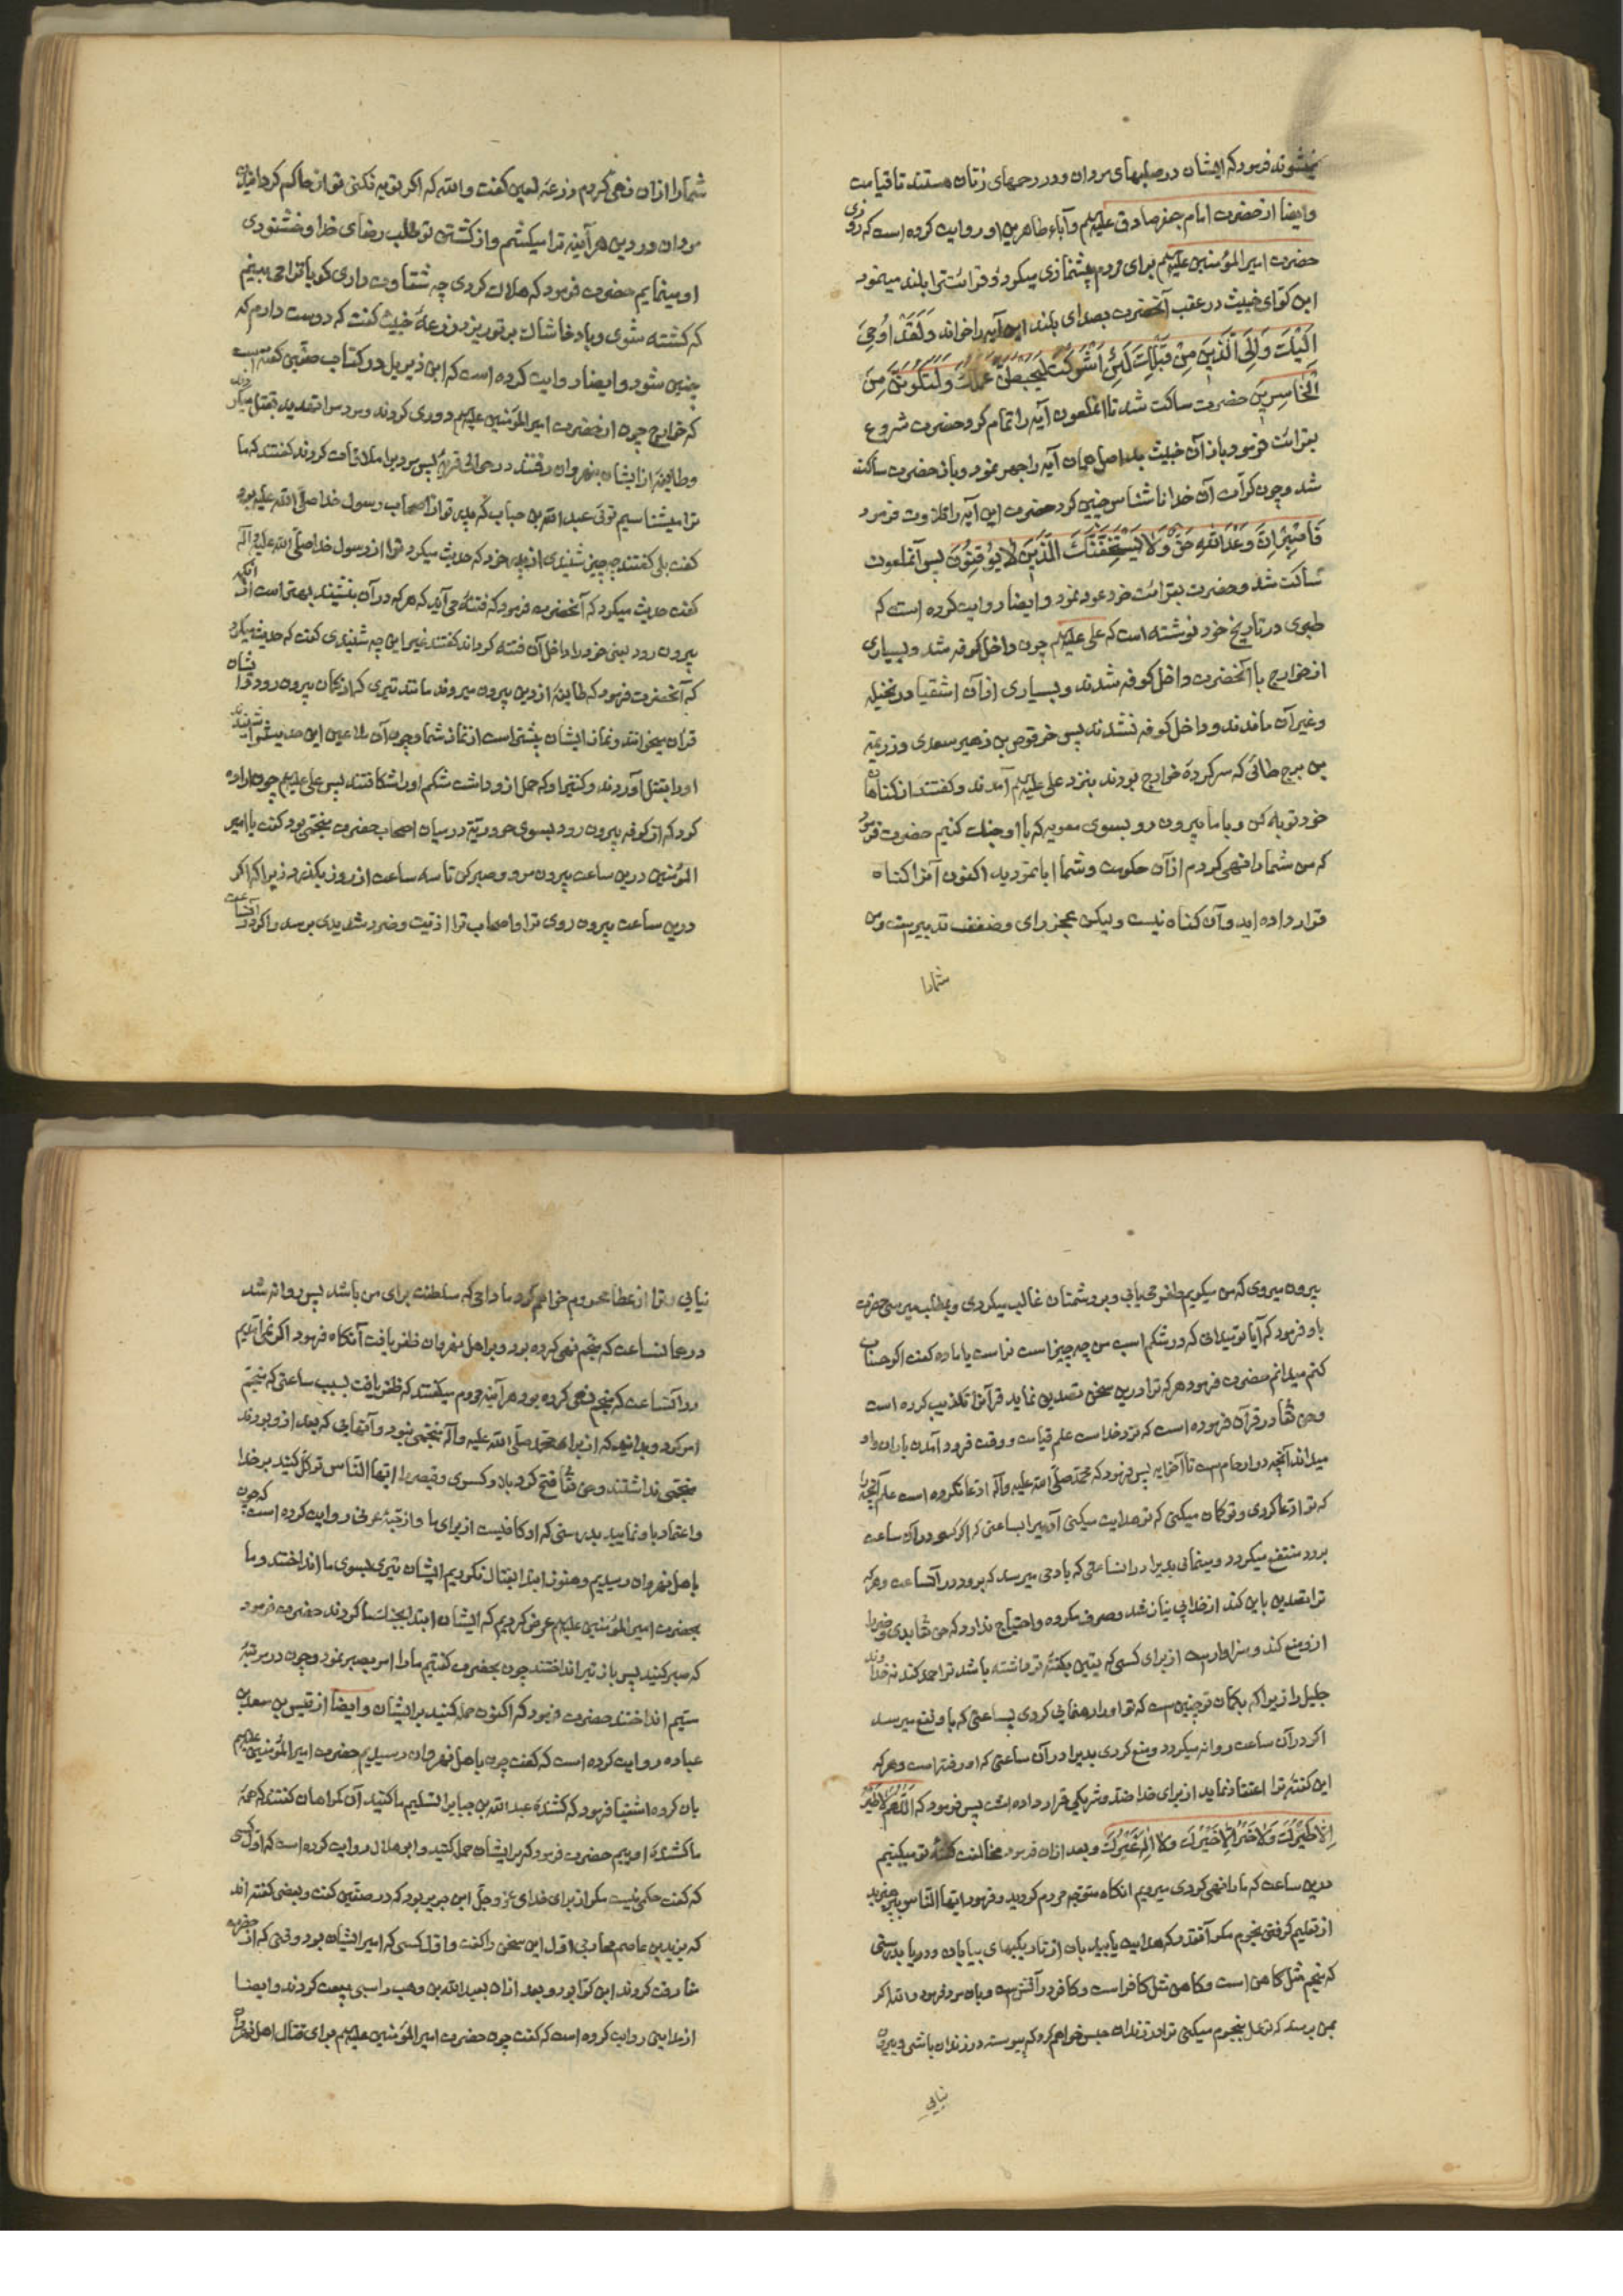 نمیشوند فرمود که ایشان در صلبهای مردان و در رحمهای زنان هستند تا قیامت
وایضا از حضرت امام جعفر صادق علیهم و آباء طاهرین او روایت کرده است که روزی
حضرت امیر المؤمنین علیهم برای مردم پیشنمازی میکرد و قرائت را بلند مینمود
ابن کوای خبیث در عقب آنحضرت بصدای بلند این آیه را خواند وَلَقَدْ اُوحِیَ
اِلَیْكَ وَاِلَی الَّذِینَ مِنْ قَبْلِكَ لَئِنْ اَشْرَکْتَ لَیَحْبَطَنَّ عَمَلُكَ وَلَتَکُونَنَّ مِنَ
الْخَاسِرِینَ حضرت ساکت شد تا انملعون آیه را تمام کرد و حضرت شروع
بقرائت فرمود باز آن خبیث بد اصل همان آیه را جهر نمود و باز حضرت ساکت
شد و چون کرّات آن خدا ناشناس چنین کرد حضرت این آیه را تلاوت فرمود
فَاصْبِرْ اِنَّ وَعْدَ اللّٰهِ حَقٌّ وَلَا یَسْتَخِفَّنَّكَ الَّذِینَ لَا یُوْقِنُونَ پس آنملعون
ساکت شد و حضرت بقرائت خود عود نمود و ایضا روایت کرده است که
طبری در تاریخ خود نوشته است که علی علیهم چون داخل کوفه شد و بسیاری
از خوارج با آنحضرت داخل کوفه شدند و بسیاری از آن اشقیا در نخیله
و غیر آن ماندند و داخل کوفه نشدند پس خرقوص بن زهیر سعدی و زرعه
بن برج طائی که سرکردۀ خوارج بودند بنزد علی علیهم آمدند و کفتند از کناه
خود توبه کن و با ما بیرون رو بسوی معویه که با او جنك کنیم حضرت فرمود
که من شما را نهی کردم از آن حکومت و شما ابا نمودید اکنون آنرا کناه
قرار داده اید و آن کناه نیست ولیکن عجز رای و ضعف تدبیر است و من
شما را
شما را از آن نهی کردم زرعه لعین کفت والله که اکر توبه نکنی تو از حاکم کردانیدن
مردان در دین هر آینه ترا میکشم و از کشتن تو طلب رضای خدا و خشنودی
او مینمایم حضرت فرمود که هلاك کردی چه شقاوت داری کویا ترا می بینم
که کشته شوی و باد خاشاك بر تو ریزد زرعه خبیث کفت که دوست دارم که
چنین شود و ایضا روایت کرده است که ابن دیزیل در کتاب صفین کفته است
که خوارج چون از حضرت امیر المؤمنین علیهم دوری کردند و مردم را تهدید بقتل میکردند
و طایفه از ایشان بنهروان رفتند در حوالی قریۀ پس مردیرا ملاقات کردند کفتند که ما
ترا میشناسیم توئی عبد الله بن خباب که پدر تو از اصحاب رسول خدا صلی الله علیه بود
کفت بلی کفتند چه چیز شنیدی از پدر خود که حدیث میکرد ترا از رسول خدا صلی الله علیه و آله
کفت حدیث میکرد که آنحضرت فرمود که فتنۀ می آید که هر که در آن بنشیند بهتر است از آنکه
بیرون رود یعنی خود را داخل آن فتنه کرداند کفتند غیر این چه شنیدی کفت که حدیث میکرد
که آنحضرت فرمود که طایفۀ از دین بیرون میروند مانند تیری که از کمان بیرون رود
قران میخوانند و نماز ایشان بیشتر است از نماز شما و چون آن ملاعین این حدیث را شنیدند
او را بقتل آوردند و کنیز او که حمل از و داشت شکم او را شکافتند پس علی علیهم چون اراده
کرد که از کوفه بیرون رود بسوی حروریّه در میان اصحاب حضرت منجّمی بود کفت یا امیر
المؤمنین درین ساعت بیرون مرو و صبر کن تا سه ساعت از روز بکذرد زیرا که اکر
درین ساعت بیرون روی ترا و اصحاب ترا اذیّت و ضرر شدیدی برسد و اکر در آنساعت
بیرون میروی که من میکویم ظفر می یابی و بر دشمنان غالب میکردی و بمطلب میرسی حضرت
باو فرمود که آیا تو میدانی که در شکم اسب من چه چیز است نر است یا ماده کفت اکر حساب
کنم میدانم حضرت فرمود هر که ترا درین سخن تصدیق نماید قرآنرا تکذیب کرده است
و حق تعالی در قرآن فرموده است که نزد خداست علم قیامت و وقت فرود آمدن باران و او
میداند آنچه در ارحام است تا آخر آیه پس فرمود که محمد صلی الله علیه و آله ادّعا نکرده است علم آنچه را
که تو ادّعا کردی و تو کمان میکنی که تو هدایت میکنی آدمیرا بساعتی که اکر کسی در آن ساعت
برود منتفع میکردد و مینمائی بدیرا در انساعتی که بادمی میرسد که برود در آنساعت و هر که
ترا تصدیق باین کند از خدا بی نیاز شد و صرف مکروه و احتیاج ندارد که حق تعالی بدی و ضرر را
از و منع کند و سزاوار است از برای کسی که یقین بکفتۀ تو داشته باشد ترا حمد کند نه خداوند
جلیل را زیرا که بکمان تو چنین است که تو او را رهنمایی کردی بساعتی که باو نفع میرسد
اکر در آن ساعت روانه میکردد و منع کردی بدیرا در آن ساعتی که او رفته است و هر که
این کفتۀ ترا اعتقاد نماید از برای خدا ضدّ و شریکی قرار داده است پس فرمود که اَللّٰهُمَّ لَا طَیْرَ
اِلَّا طَیْرُكَ وَلَا خَیْرَ اِلَّا خَیْرُكَ وَلَا اِلٰهَ غَیْرُكَ و بعد از ان فرمود مخالفت کفتۀ تو میکنیم
درین ساعت که ما را نهی کردی میرویم انکاه متوجه مردم کردید و فرمود ایّها النّاس بپرهیزید
از تعلیم کرفتن نجوم مکر آنقدر که هدایت یابید بان از تاریکیهای بیابان و دریا بدرستی
که منجم مثل کاهن است و کاهن مثل کافر است و کافر در آتش است و بان مرد فرمود والله اکر
بمن برسد که عمل بنجوم میکنی ترا در زندان حبس خواهم کرد که پیوسته در زندان باشی و بیرون
نیابی
نیابی و ترا از عطا محروم خواهم کرد مادامی که سلطنت برای من باشد پس روانه شد
در همانساعت که منجم نهی کرده بود و بر اهل نهروان ظفر یافت آنکاه فرمود اکر نمی آمدیم
در آنساعت که منجم نهی کرده بود هر آینه مردم میکفتند که ظفر یافت بسبب ساعتی که منجم
امر کرد و بدانید که از برای محمد صلی الله علیه و آله منجّمی نبود و آنهایی که بعد از و بودند
منجّمی نداشتند و حق تعالی فتح کرد بلاد کسری و قیصر را ایّها النّاس توکّل کنید بر خدا
و اعتماد باو نمایید بدرستی که او کافیست از برای ما و از حبّۀ عرنی روایت کرده است که چون
باهل نهروان رسیدیم و هنوز ابتدا بقتال نکردیم ایشان تیری بسوی ما انداختند و ما
بحضرت امیر المؤمنین علیهم عرض کردیم که ایشان ابتدا بجنك ما کردند حضرت فرمود
که صبر کنید پس باز تیر انداختند چون بحضرت کفتیم ما را امر بصبر نمود و چون در مرتبۀ
سیّم انداختند حضرت فرمود که اکنون حمله کنید بر ایشان و ایضا از قیس بن سعد بن
عباده روایت کرده است که کفت چون باهل نهروان رسیدیم حضرت امیر المؤمنین علیهم
بان کروه اشقیا فرمود که کشندۀ عبد الله بن خباب را تسلیم ما کنید آن کمراهان کفتند که همۀ
ما کشندۀ اوییم حضرت فرمود که بر ایشان حمله کنید و ابو هلال روایت کرده است که اول کسی
که کفت حکمی نیست مکر از برای خدای عزّ و جلّ ابن جریر بود که در صفّین کفت و بعضی کفته اند
که یزید بن عاصم محاربی اول این سخن را کفت و اول کسی که امیر ایشان بود وقتی که از حضرت
مفارقت کردند ابن کوّا بود و بعد از ان بعبد الله بن وهب راسبی بیعت کردند و ایضا
از مداینی روایت کرده است که کفت چون حضرت امیر المؤمنین علیهم برای قتال اهل نهروان